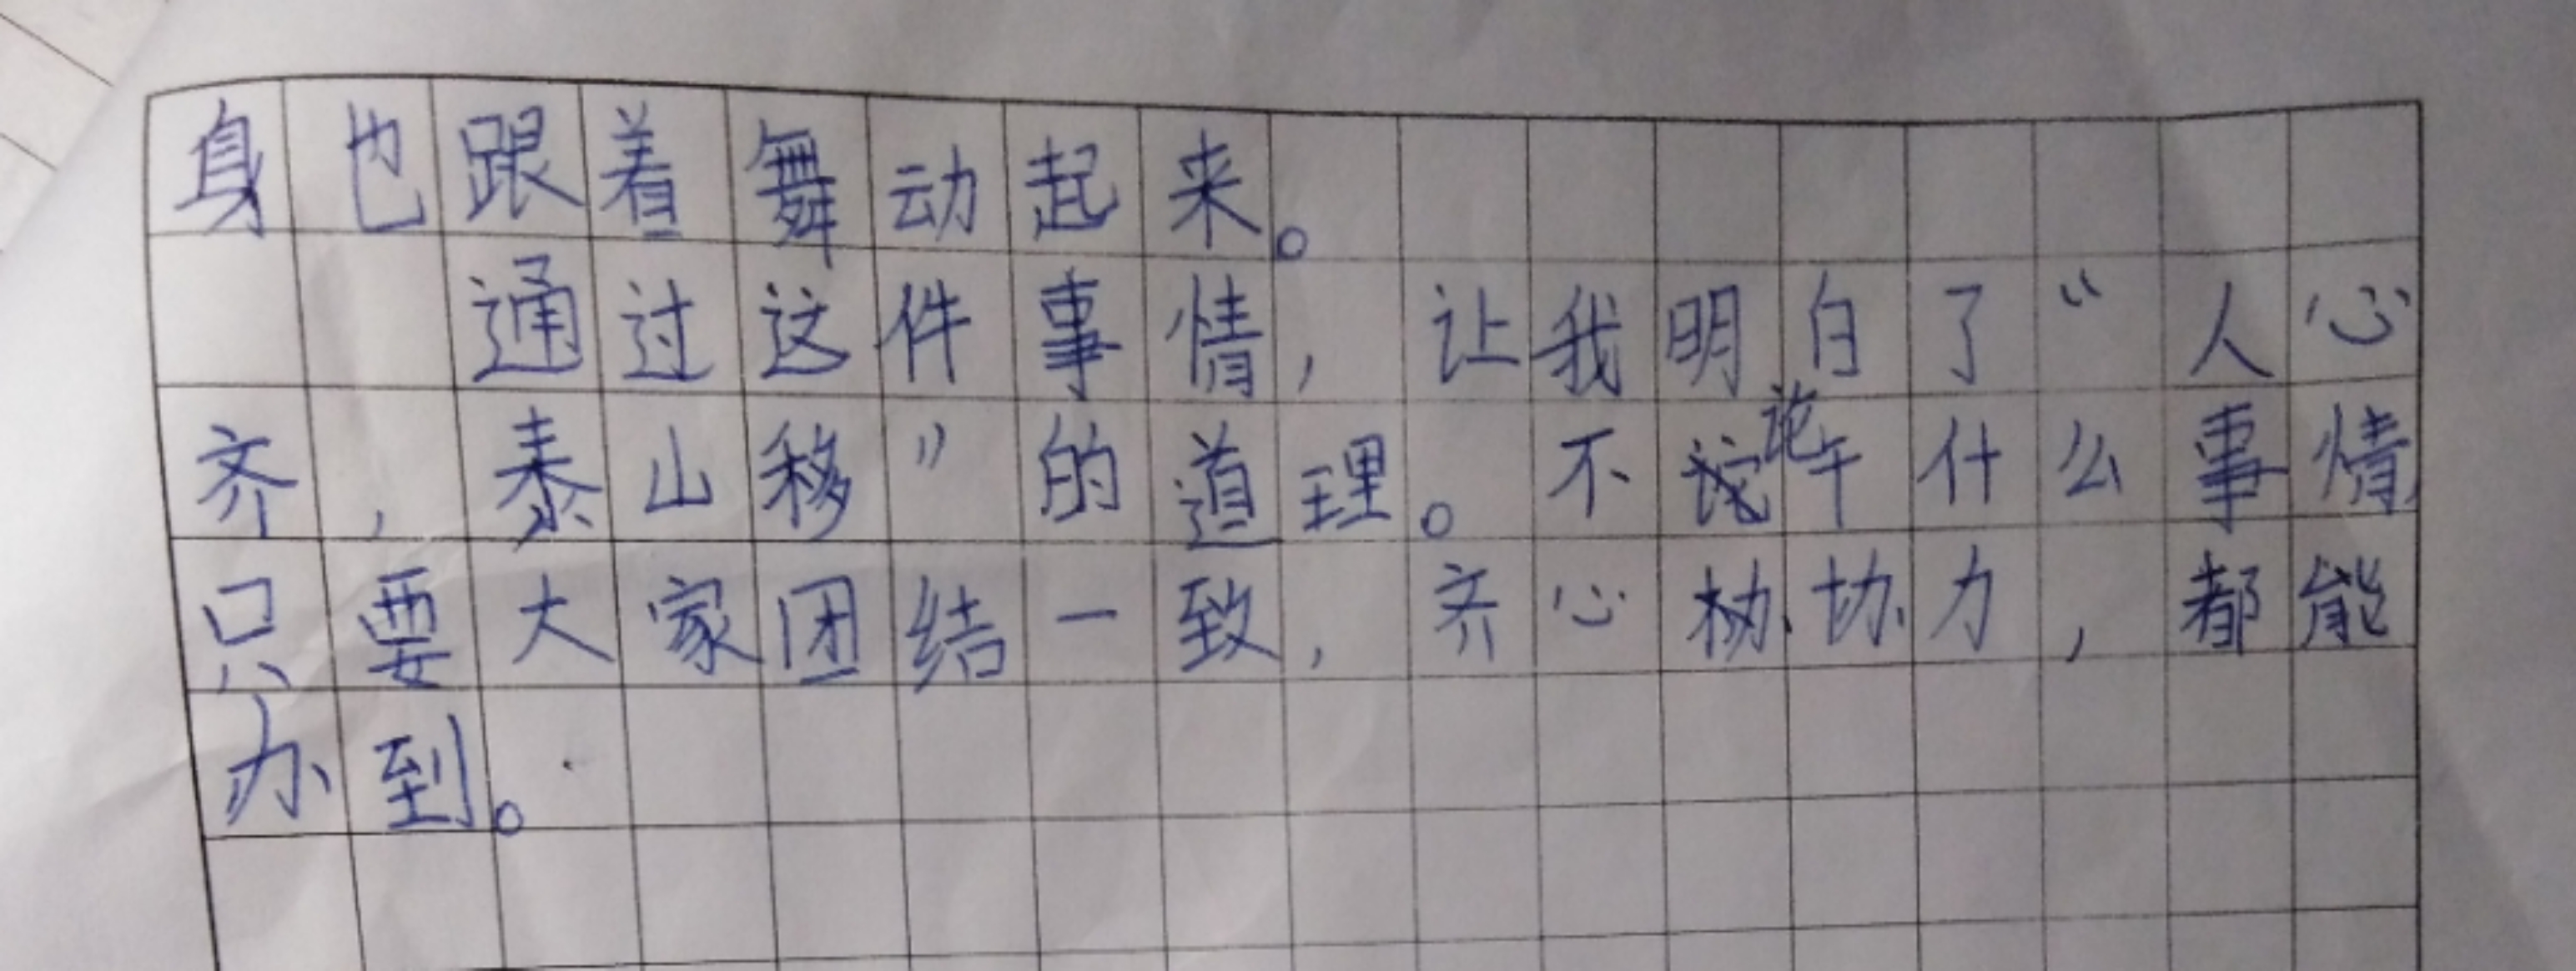 身也跟着舞动起来。
通过这件事情，让我明白了“人心
齐，泰山移”的道理。不论干什么事情，
只要大家团结一致，齐心协力，都能
办到。